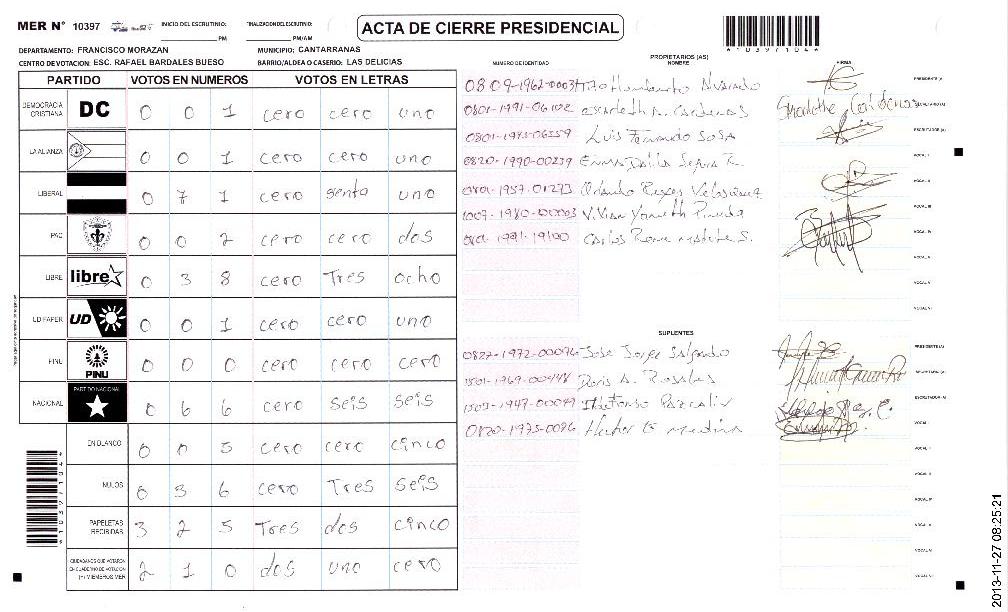 MER N° 10397
INICIO DEL ESCRUTINIO: PM
FINALIZACION DEL ESCRUTINIO: PM/AM
ACTA DE CIERRE PRESIDENCIAL
*10397104*
DEPARTAMENTO: FRANCISCO MORAZAN MUNICIPIO: CANTARRANAS
CENTRO DE VOTACION: ESC. RAFAEL BARDALES BUESO BARRIO/ALDEA O CASERIO: LAS DELICIAS
PARTIDO VOTOS EN NUMEROS VOTOS EN LETRAS
DEMOCRACIA CRISTIANA DC 0 0 1 cero cero uno
LA ALIANZA 0 0 1 cero cero uno
LIBERAL 0 7 1 cero senta uno
PAC 0 0 2 cero cero dos
LIBRE libre 0 3 8 cero Tres ocho
UD FAPER UD 0 0 1 cero cero uno
PINU PINU 0 0 0 cero cero cero
NACIONAL PARTIDO NACIONAL 0 6 6 cero seis seis
EN BLANCO 0 0 5 cero cero cinco
NULOS 0 3 6 cero Tres seis
PAPELETAS RECIBIDAS 3 2 5 Tres dos cinco
CIUDADANOS QUE VOTARON EN CUADERNO DE VOTACION (+) MIEMBROS MER 2 1 0 dos uno cero
*10397104*
NUMERO DE IDENTIDAD PROPIETARIOS (AS) NOMBRE FIRMA
Humberto Alvarado PRESIDENTE(A)
0801-1991-06102 Cardenas SECRETARIO(A)
Luis Fernando Sosa ESCRUTADOR(A)
0820-1990-00239 VOCAL I
0801-1957-01273 Orlando Reyes Velasquez VOCAL II
1007-1980-00003 Pineda VOCAL III
Carlos Rene VOCAL IV
VOCAL V
VOCAL VI
SUPLENTES
0827-1972-00096 Jose Jorge Salgado PRESIDENTE(A)
1501-1969-00448 Doris A. Rosales SECRETARIO(A)
1503-1947-00049 Ildefonso ESCRUTADOR(A)
0820-1975-0096 Hector G medina VOCAL I
VOCAL II
VOCAL III
VOCAL IV
VOCAL V
VOCAL VI
2013-11-27 08:25:21